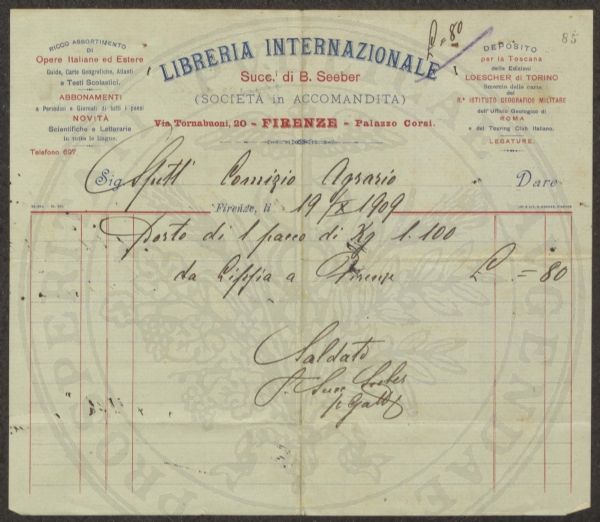 £ = 80
85
RICCO ASSORTIMENTO
DI
Opere Italiane ed Estere
Guide, Carte Geografiche, Atlanti
e Testi Scolastici.
ABBONAMENTI
a Periodici e Giornali di tutti i paesi
NOVITÀ
Scientifiche e Letterarie
in tutte le lingue.
Telefono 697
LIBRERIA INTERNAZIONALE
Succ.ri di B. Seeber
(SOCIETÀ in ACCOMANDITA)
Via Tornabuoni, 20 - FIRENZE - Palazzo Corsi.
DEPOSITO
per la Toscana
delle Edizioni
LOESCHER di TORINO
Smercio delle carte
del
R.o ISTITUTO GEOGRAFICO MILITARE
dell'Ufficio Geologico di
ROMA
e del Touring Club Italiano.
LEGATURE.
Sig. Spett. Comizio Agrario Dare
Firenze, li 19/X 1909
Porto di 1 pacco di Kg 1.100
da Lipsia a Firenze £ .=80
Saldato
p. Succ Seeber